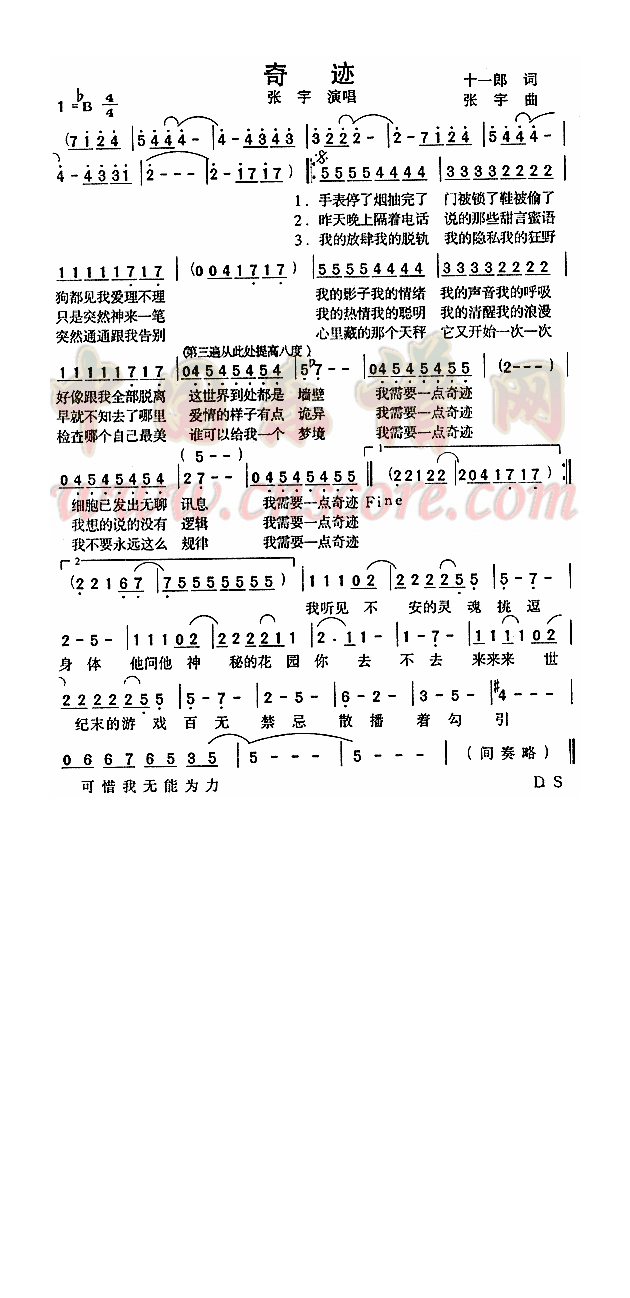 奇 迹
十一郎 词
1=♭B 4/4
张 宇 演唱
张 宇 曲
(7124 5444- | 4-4343 | 3222- | 2-7124 | 5444- |
4-4331 | 2--- | 2-1717) | 55554444 | 33332222 |
1. 手表停了烟抽完了 门被锁了鞋被偷了
2. 昨天晚上隔着电话 说的那些甜言蜜语
3. 我的放肆我的脱轨 我的隐私我的狂野
11111717 | (0041717) | 55554444 | 33332222 |
狗都见我爱理不理 我的影子我的情绪 我的声音我的呼吸
只是突然神来一笔 我的热情我的聪明 我的清醒我的浪漫
突然通通跟我告别 心里藏的那个天秤 它又开始一次一次
(第三遍从此处提高八度)
11111717 | 04545454 | 5♭7-- | 04545455 | (2---) |
好像跟我全部脱离 这世界到处都是 墙壁 我需要一点奇迹
早就不知去了哪里 爱情的样子有点 诡异 我需要一点奇迹
检查哪个自己最美 谁可以给我一个 梦境 我需要一点奇迹
(5--)
1
04545454 | 27-- | 04545455 ‖ (22122 | 2041717) :‖
细胞已发出无聊 讯息 我需要一点奇迹 Fine
我想的说的没有 逻辑 我需要一点奇迹
我不要永远这么 规律 我需要一点奇迹
2
(22167 | 75555555) | 11102 | 222255 | 5-7- |
我听见 不 安的灵 魂 挑 逗
2-5- | 11102 | 222211 | 2·11- | 1-7- | 111102 |
身 体 他问他 神 秘的花 园 你 去 不 去 来来来 世
2222255 | 5-7- | 2-5- | 6-2- | 3-5- | #4--- |
纪末的游 戏 百 无 禁 忌 散 播 着 勾 引
06676535 | 5--- | 5--- | (间奏略) ‖
可惜我无能为力 D S
www.cnscore.com